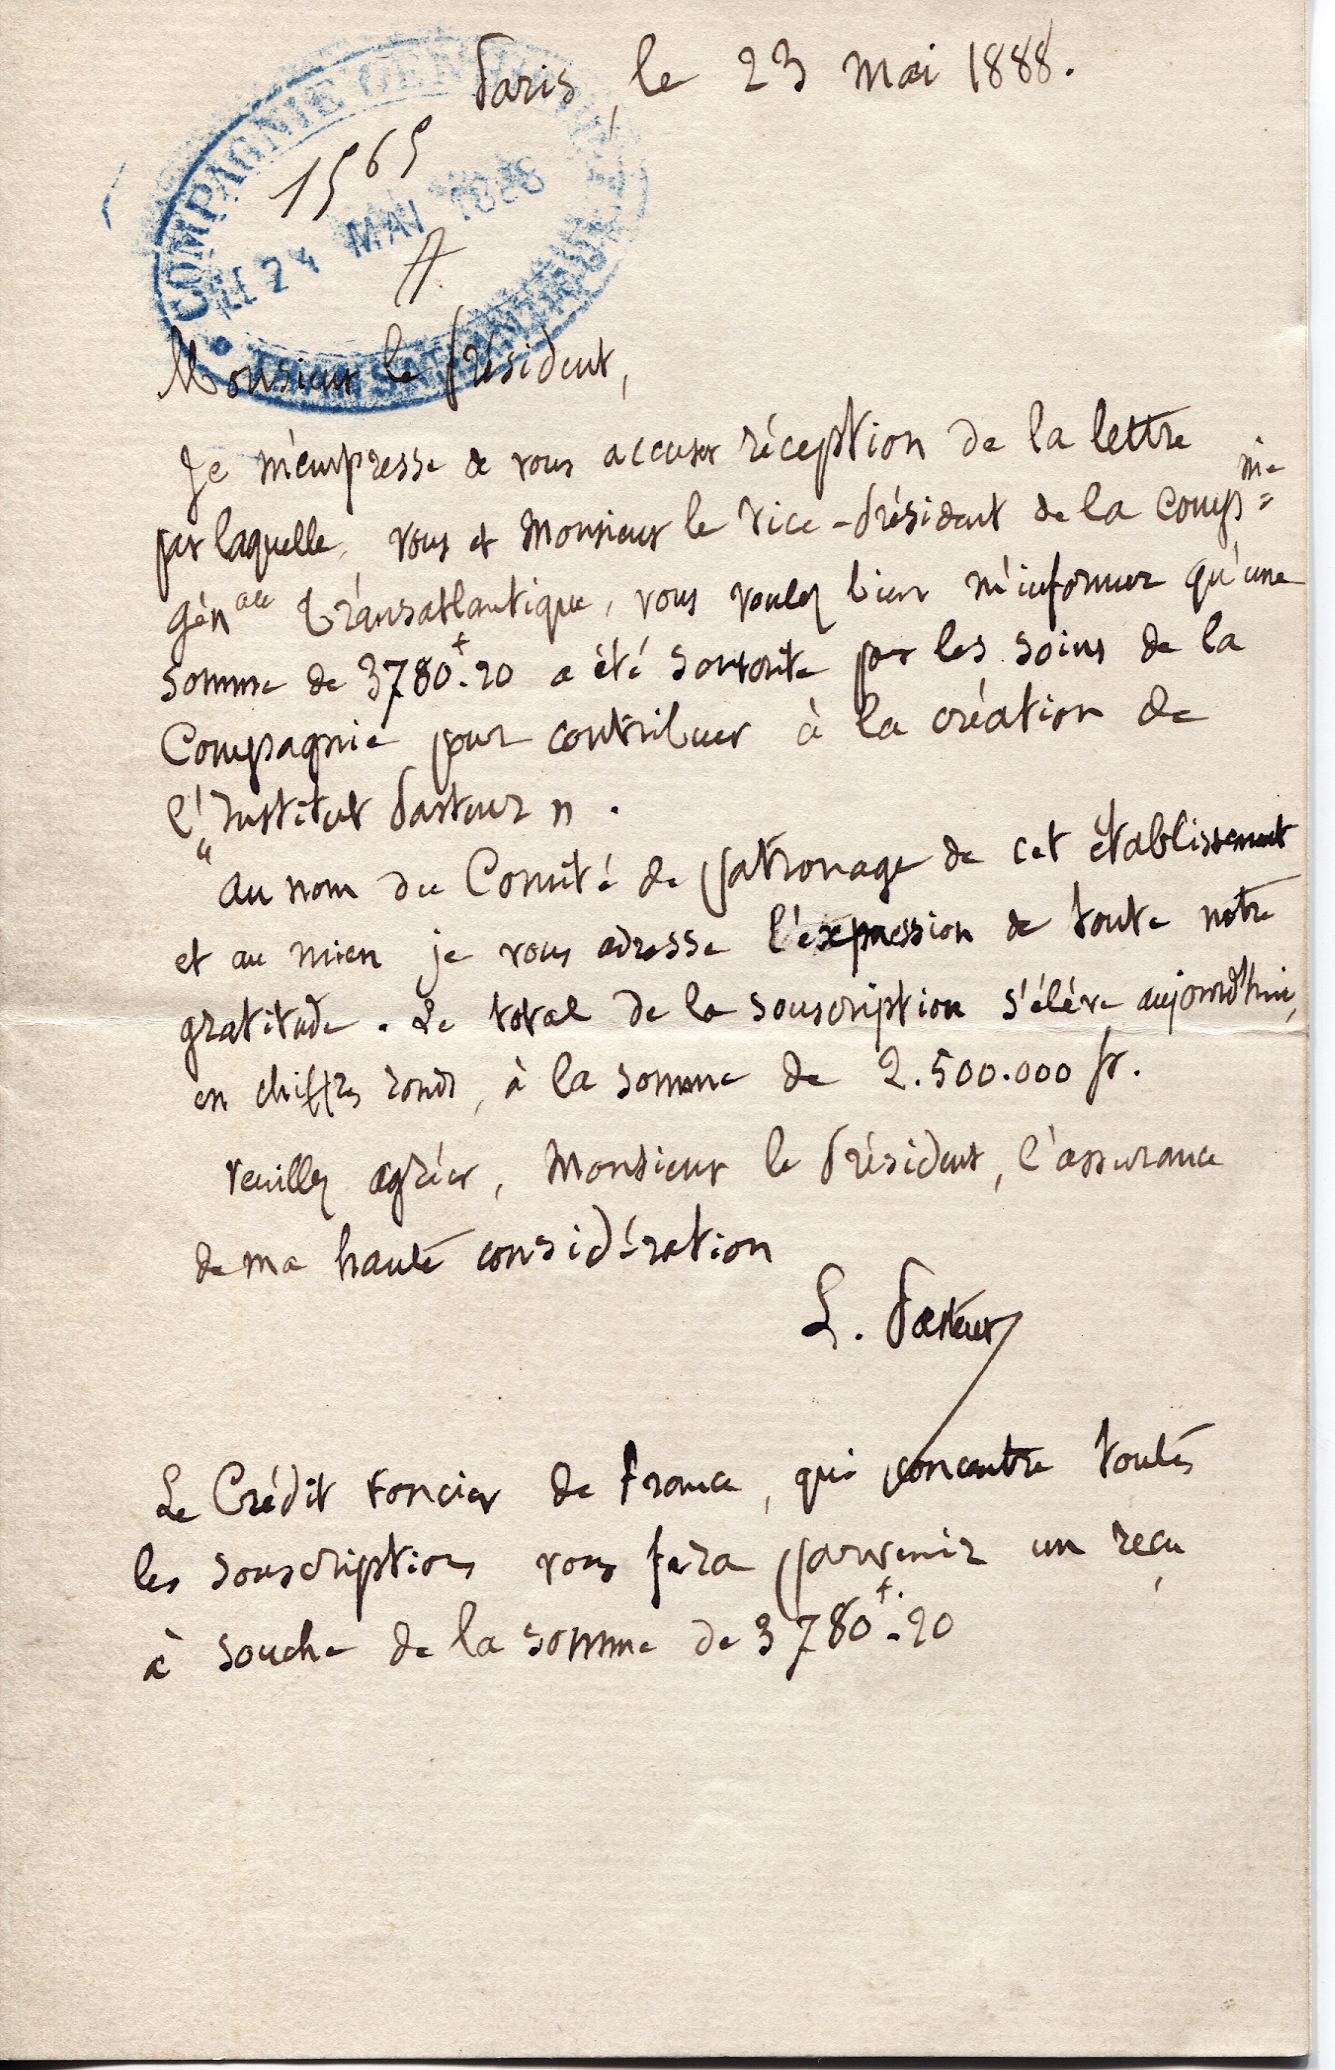 Paris, le 23 mai 1888.
COMPAGNIE GENERALE
1565
LE 24 MAI 1888
A
TRANSATLANTIQUE
Monsieur le Président,
Je m'empresse de vous accuser réception de la lettre
par laquelle, vous et Monsieur le Vice-Président de la Compnie
Génale Transatlantique, vous voulez bien m'informer qu'une
somme de 3780f.20 a été souscrite par les soins de la
Compagnie pour contribuer à la création de
l'"Institut Pasteur".
Au nom du Comité de patronage de cet établissement
et au mien je vous adresse l'expression de toute notre
gratitude. Le total de la souscription s'élève aujourd'hui,
en chiffres ronds, à la somme de 2.500.000 fr.
Veuillez agréer, Monsieur le Président, l'assurance
de ma haute considération
L. Pasteur
Le Crédit foncier de France, qui concentre toutes
les souscriptions vous fera parvenir un reçu
à souche de la somme de 3780f.20